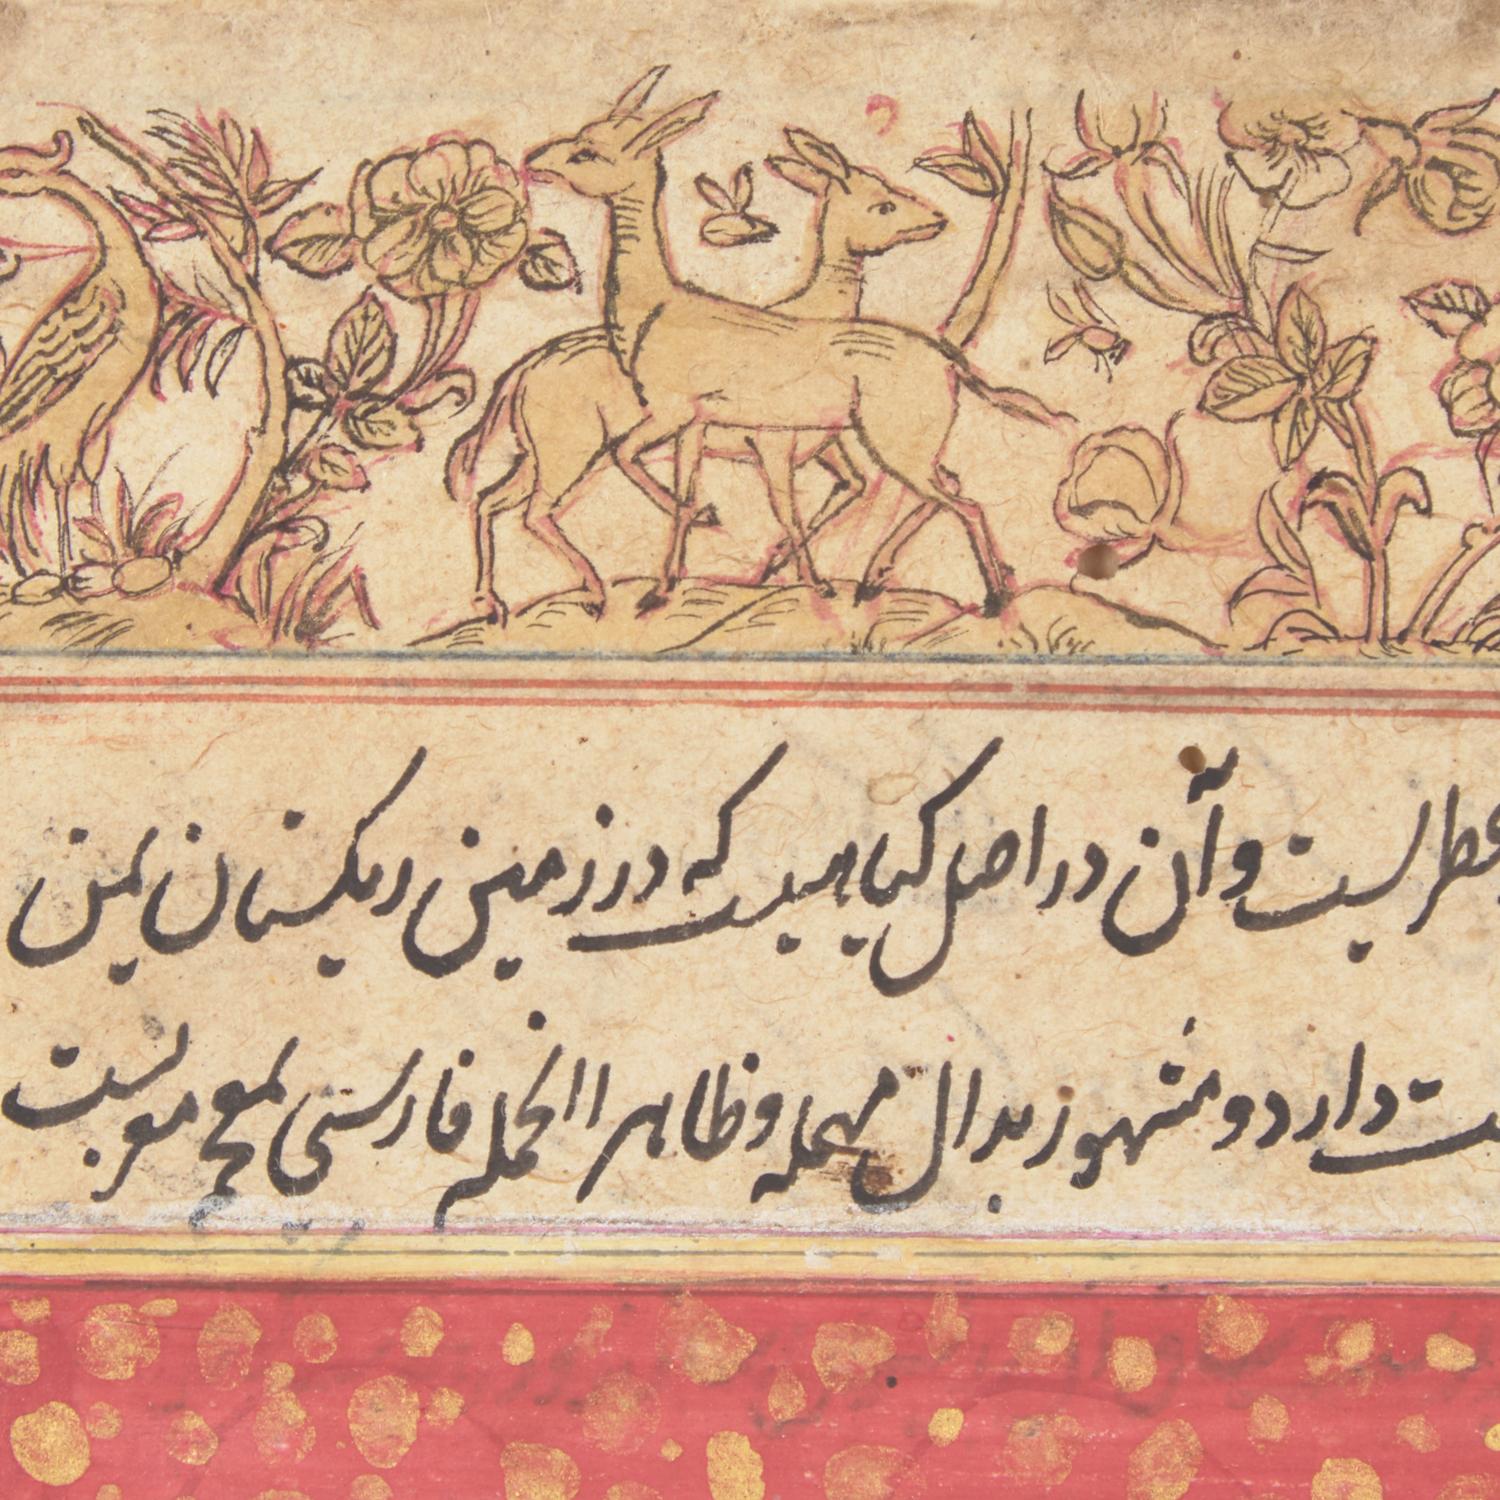 عطریست و آن در اصل کیاهیست که در زمین ریکستان یمن
دارد و مشهور بدال مهمله و ظاهرا الخمله فارسی معربست